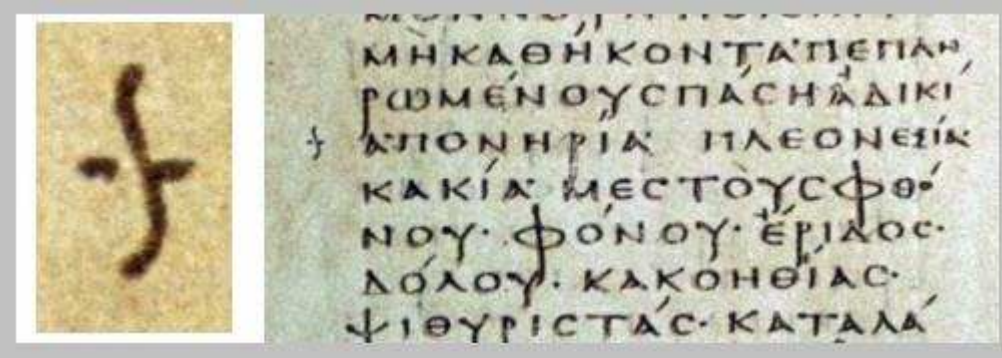 ΜΗΚΑΘΗΚΟΝΤΑΠΕΠΛΗ
ΡΩΜΕΝΟΥϹΠΑϹΗΑΔΙΚΙ
ΑΠΟΝΗΡΙΑ ΠΛΕΟΝΕΞΙΑ
ΚΑΚΙΑ ΜΕϹΤΟΥϹΦΘΟ
ΝΟΥ· ΦΟΝΟΥ· ΕΡΙΔΟϹ·
ΔΟΛΟΥ· ΚΑΚΟΗΘΙΑϹ·
ΨΙΘΥΡΙϹΤΑϹ· ΚΑΤΑΛΑ